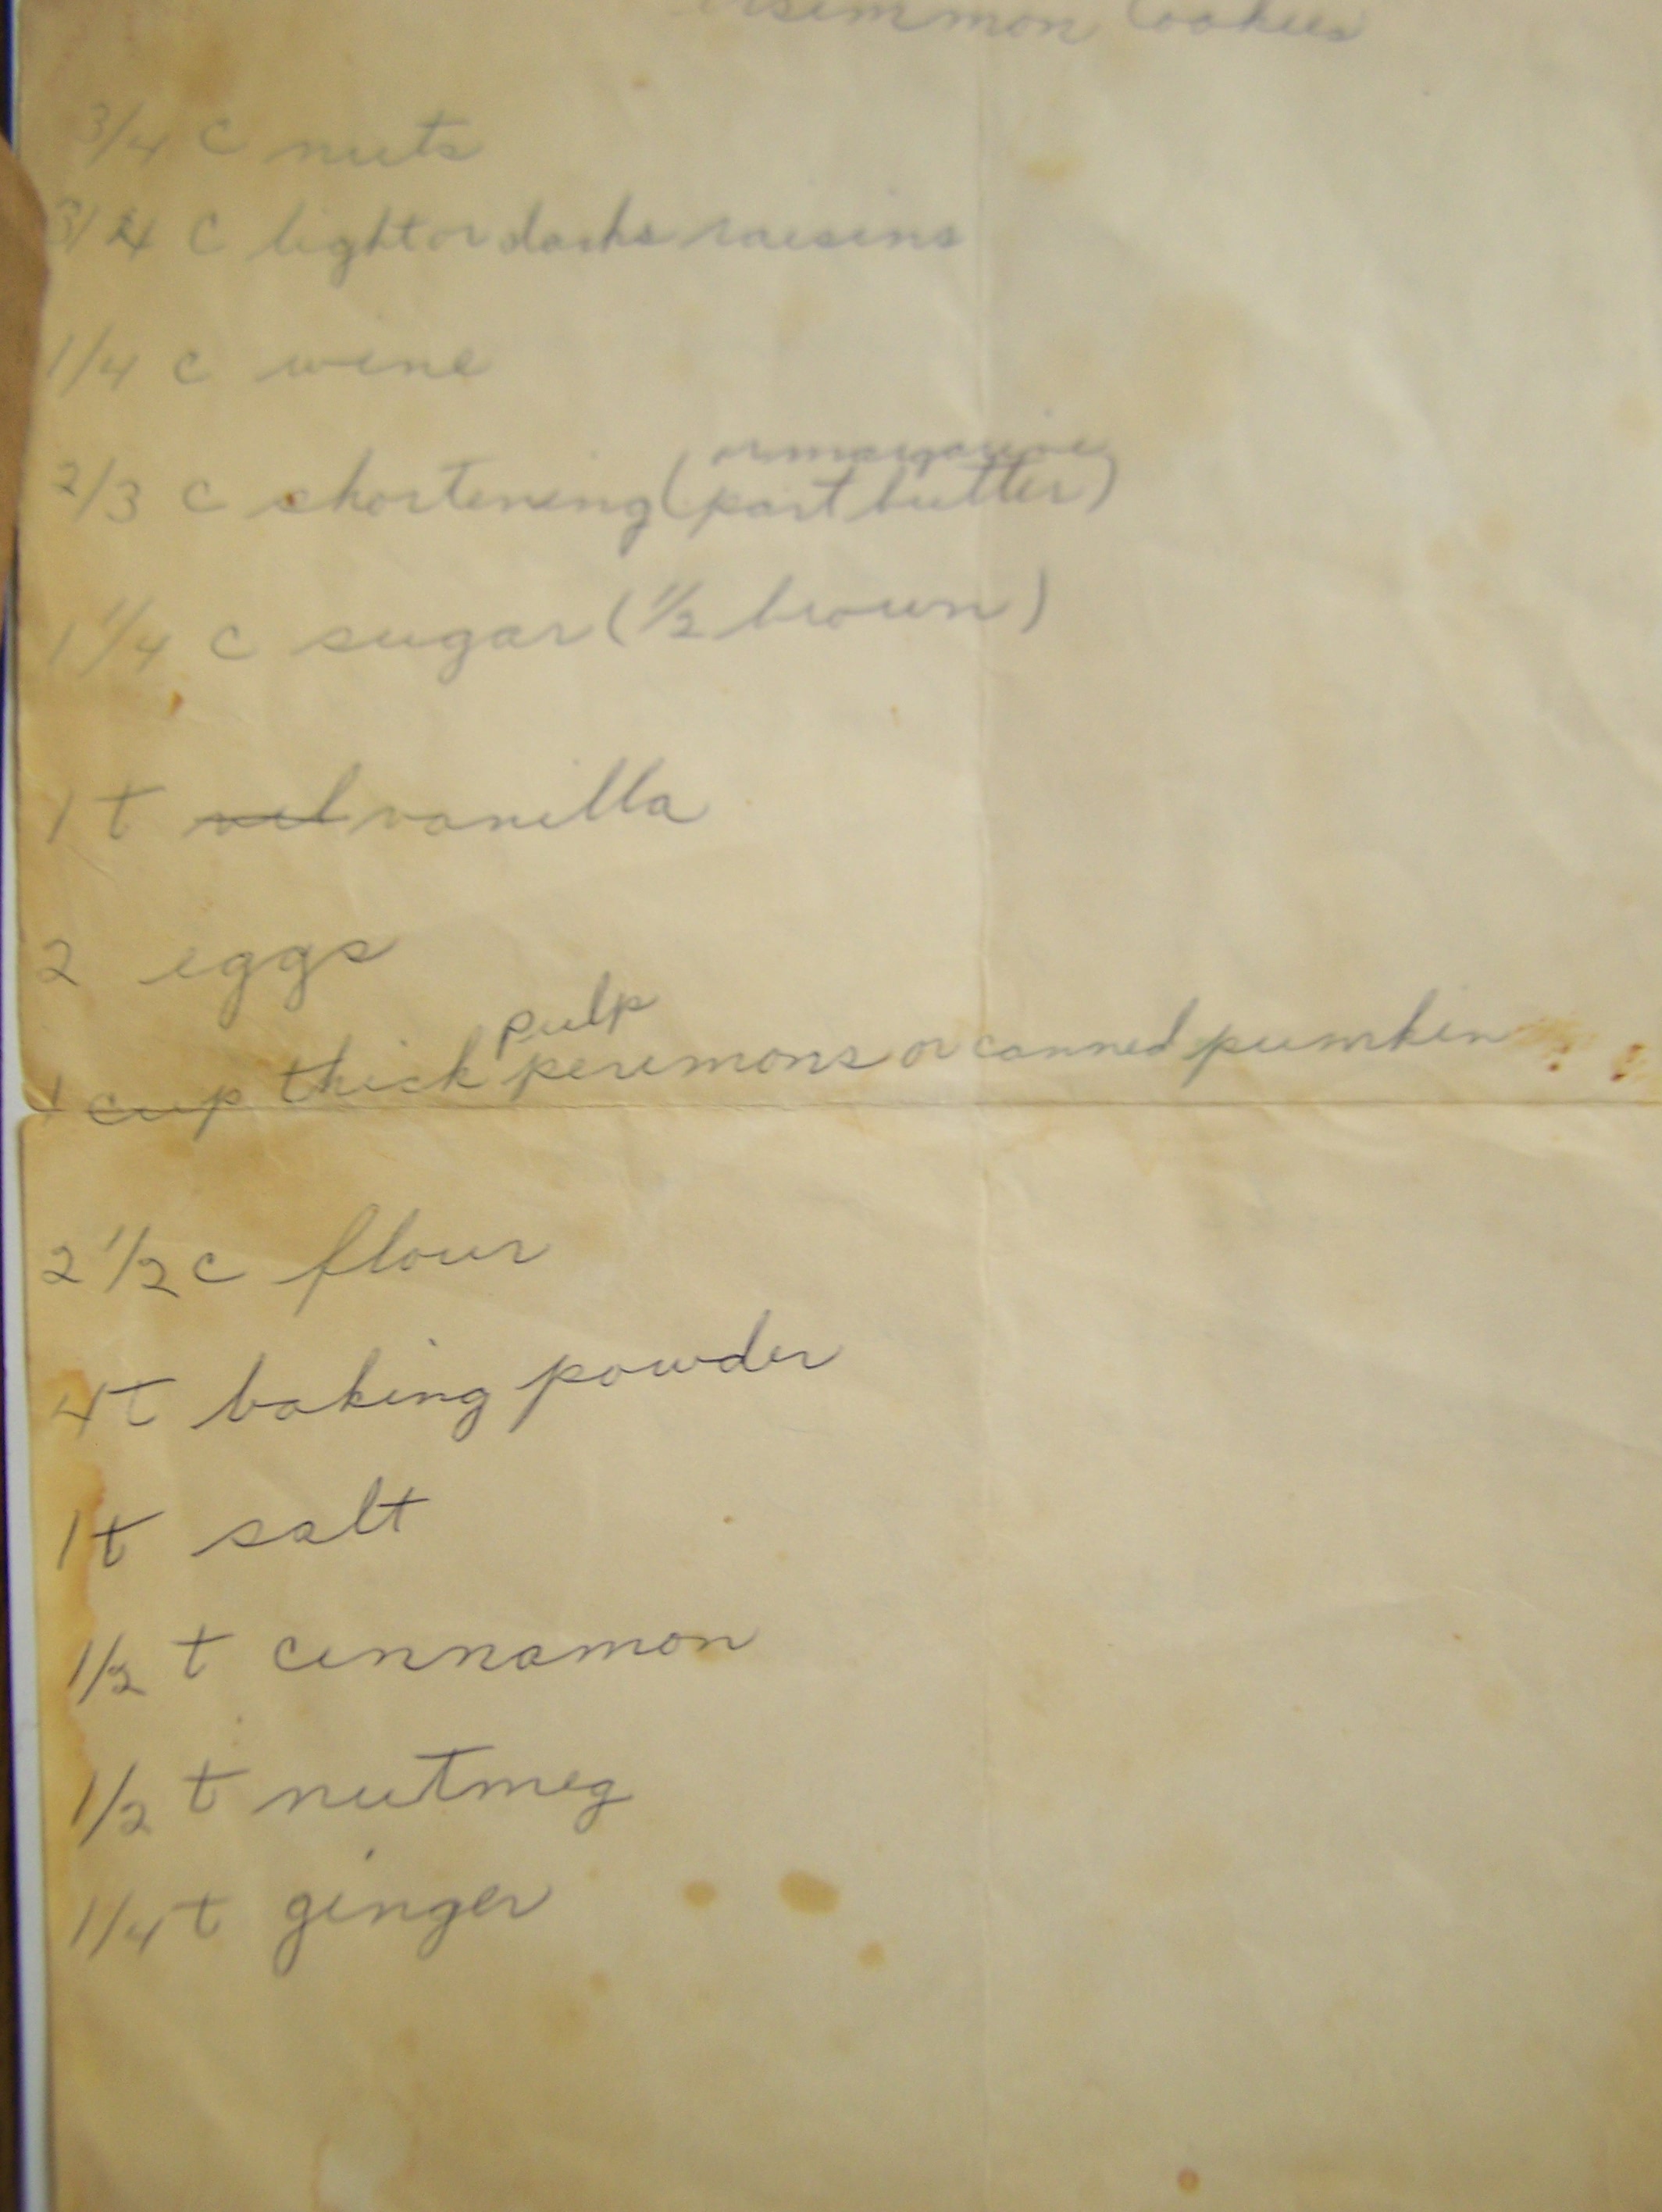 ersimmon Cookies
3/4 c nuts
3/4 c light or darks raisins
1/4 c wine
or margarine
2/3 c shortening (part butter)
1 1/4 c sugar (1/2 brown)
1 t vanilla
2 eggs
pulp
1 cup thick perimons or canned pumkin
2 1/2 c flour
4t baking powder
1t salt
1/2 t cinnamon
1/2 t nutmeg
1/4 t ginger